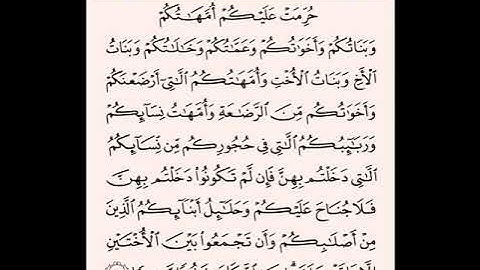 حُرِّمَتْ عَلَيْكُمْ أُمَّهَٰتُكُمْ
وَبَنَاتُكُمْ وَأَخَوَٰتُكُمْ وَعَمَّٰتُكُمْ وَخَٰلَٰتُكُمْ وَبَنَاتُ
ٱلْأَخِ وَبَنَاتُ ٱلْأُخْتِ وَأُمَّهَٰتُكُمُ ٱلَّٰتِىٓ أَرْضَعْنَكُمْ
وَأَخَوَٰتُكُم مِّنَ ٱلرَّضَٰعَةِ وَأُمَّهَٰتُ نِسَآئِكُمْ
وَرَبَٰٓئِبُكُمُ ٱلَّٰتِى فِى حُجُورِكُم مِّن نِّسَآئِكُمُ
ٱلَّٰتِى دَخَلْتُم بِهِنَّ فَإِن لَّمْ تَكُونُوا۟ دَخَلْتُم بِهِنَّ
فَلَا جُنَاحَ عَلَيْكُمْ وَحَلَٰٓئِلُ أَبْنَآئِكُمُ ٱلَّذِينَ
مِنْ أَصْلَٰبِكُمْ وَأَن تَجْمَعُوا۟ بَيْنَ ٱلْأُخْتَيْنِ